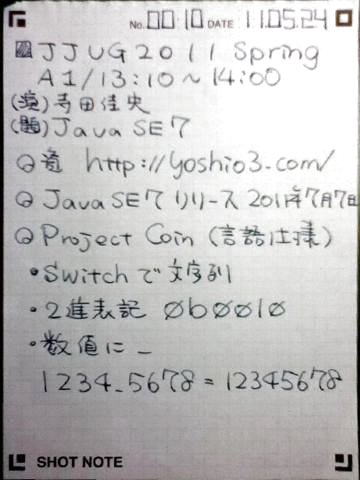 No. 00:10 DATE 11.05.24
JJUG2011 Spring
A1/13:10～14:00
(演)寺田佳央
(題)Java SE7
資 http://yoshio3.com/
Java SE7 リリース 2011年7月7日
Project Coin (言語仕様)
・Switchで文字列
・2進表記 0b0010
・数値に _
1234_5678 = 12345678
SHOT NOTE